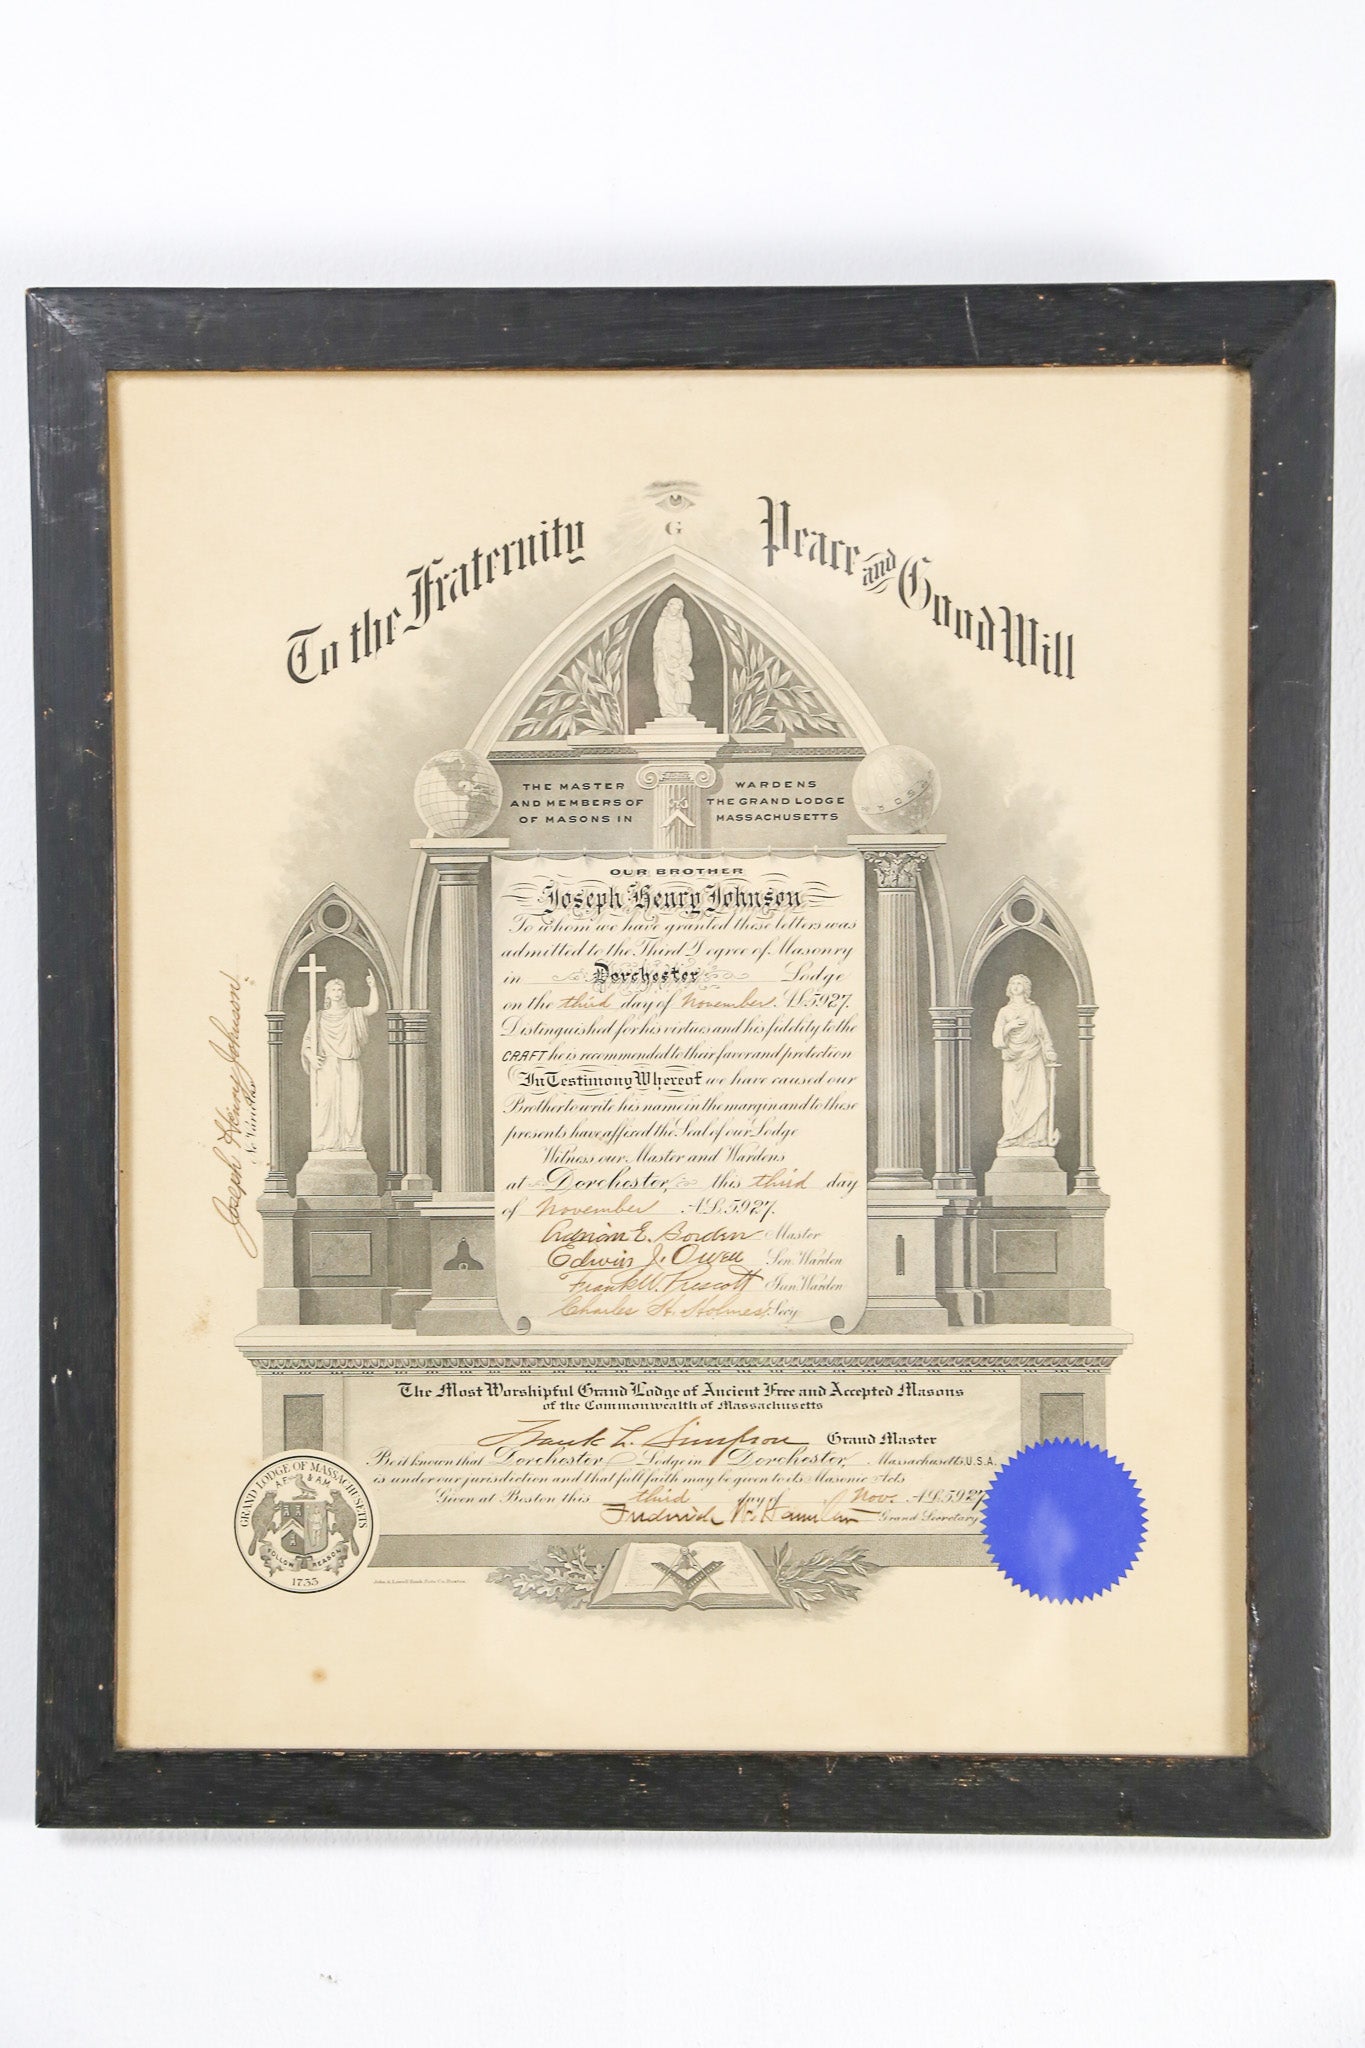 G
To the Fraternity Peace and Good Will
THE MASTER WARDENS
AND MEMBERS OF THE GRAND LODGE
OF MASONS IN MASSACHUSETTS
OUR BROTHER
Joseph Henry Johnson
To whom we have granted these letters was
admitted to the Third Degree of Masonry
in Dorchester Lodge
on the third day of November A.L.5927.
Distinguished for his virtues and his fidelity to the
CRAFT he is recommended to their favor and protection
In Testimony Whereof we have caused our
Brother to write his name in the margin and to these
presents have affixed the Seal of our Lodge
Witness our Master and Wardens
at Dorchester, this third day
of November A.L.5927.
Adrian E. Borden Master
Edwin J. Owen Sen. Warden
Frank W. Prescott Jun. Warden
Charles H. Holmes Secy
Joseph Henry Johnson
Ne Varietur
The Most Worshipful Grand Lodge of Ancient Free and Accepted Masons
of the Commonwealth of Massachusetts
Frank L. Simpson Grand Master
Be it known that Dorchester Lodge in Dorchester, Massachusetts, U.S.A.
is under our jurisdiction and that full faith may be given to its Masonic Acts
Given at Boston this third day of Nov. A.L.5927
Frederick W. Hamilton Grand Secretary
GRAND LODGE OF MASSACHUSETTS
A.F. & A.M.
FOLLOW REASON
1733